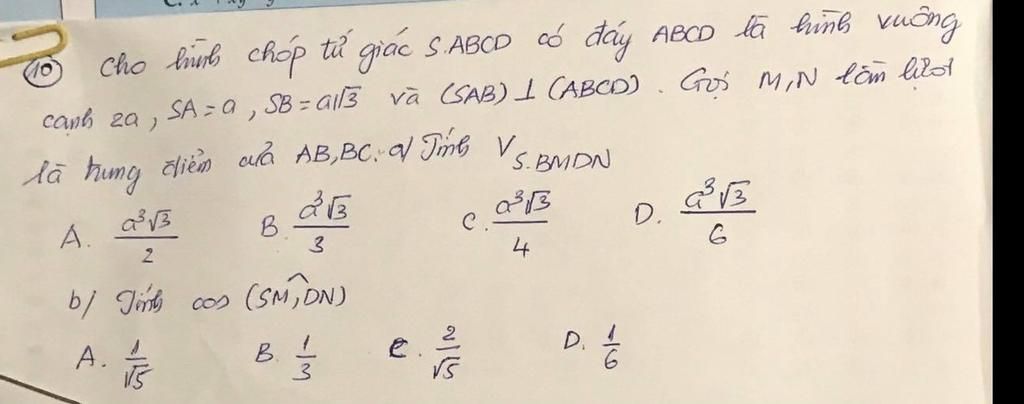 10 Cho hình chóp tứ giác S.ABCD có đáy ABCD là hình vuông
cạnh 2a, SA = a, SB = a√3 và (SAB) ⊥ (ABCD). Gọi M, N lần lượt
là trung điểm của AB, BC. a/ Tính V_{S.BMDN}
A. a³√3/2 B. a³√3/3 C. a³√3/4 D. a³√3/6
b/ Tính cos (SM, DN)
A. 1/√5 B. 1/3 C. 2/√5 D. 1/6